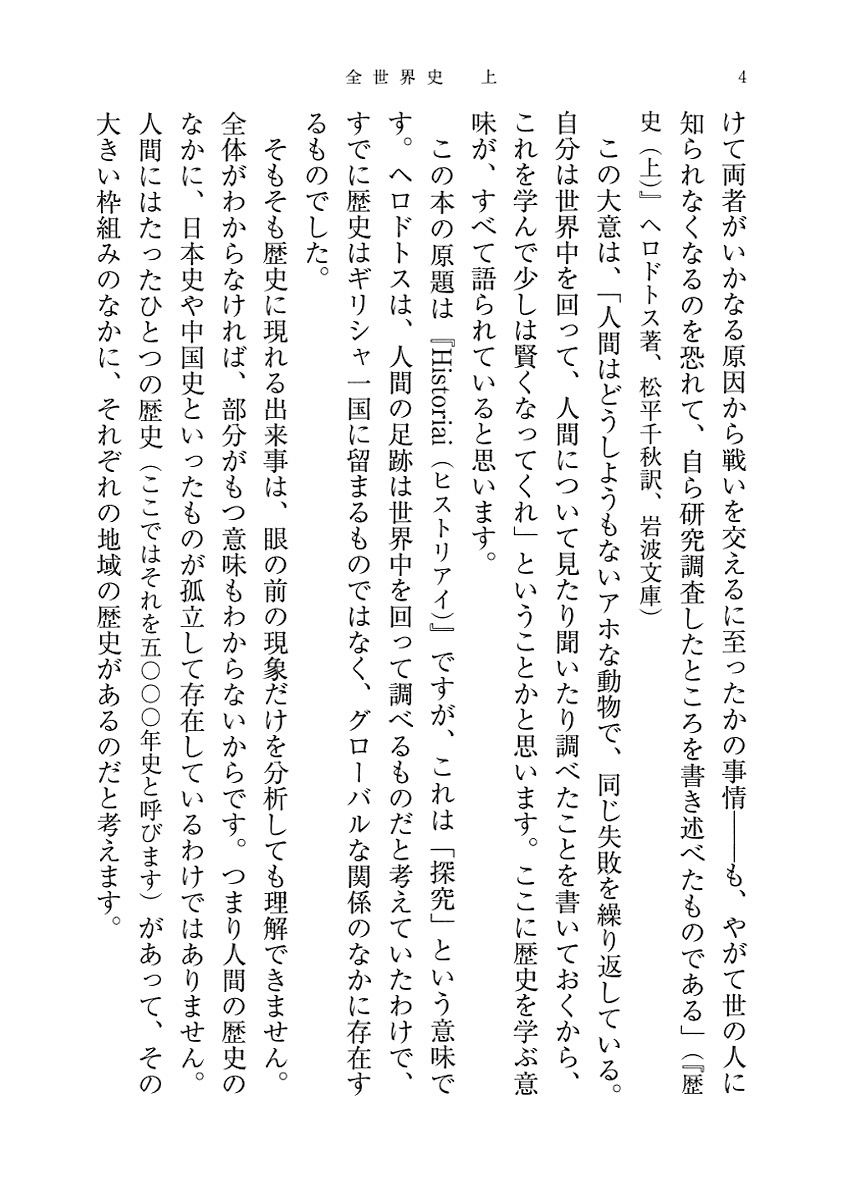 全世界史 上
4
けて両者がいかなる原因から戦いを交えるに至ったかの事情――も、やがて世の人に
知られなくなるのを恐れて、自ら研究調査したところを書き述べたものである」（『歴
史（上）』ヘロドトス著、松平千秋訳、岩波文庫）
この大意は、「人間はどうしようもないアホな動物で、同じ失敗を繰り返している。
自分は世界中を回って、人間について見たり聞いたり調べたことを書いておくから、
これを学んで少しは賢くなってくれ」ということかと思います。ここに歴史を学ぶ意
味が、すべて語られていると思います。
この本の原題は『Historiai（ヒストリアイ）』ですが、これは「探究」という意味で
す。ヘロドトスは、人間の足跡は世界中を回って調べるものだと考えていたわけで、
すでに歴史はギリシャ一国に留まるものではなく、グローバルな関係のなかに存在す
るものでした。
そもそも歴史に現れる出来事は、眼の前の現象だけを分析しても理解できません。
全体がわからなければ、部分がもつ意味もわからないからです。つまり人間の歴史の
なかに、日本史や中国史といったものが孤立して存在しているわけではありません。
人間にはたったひとつの歴史（ここではそれを五〇〇〇年史と呼びます）があって、その
大きい枠組みのなかに、それぞれの地域の歴史があるのだと考えます。